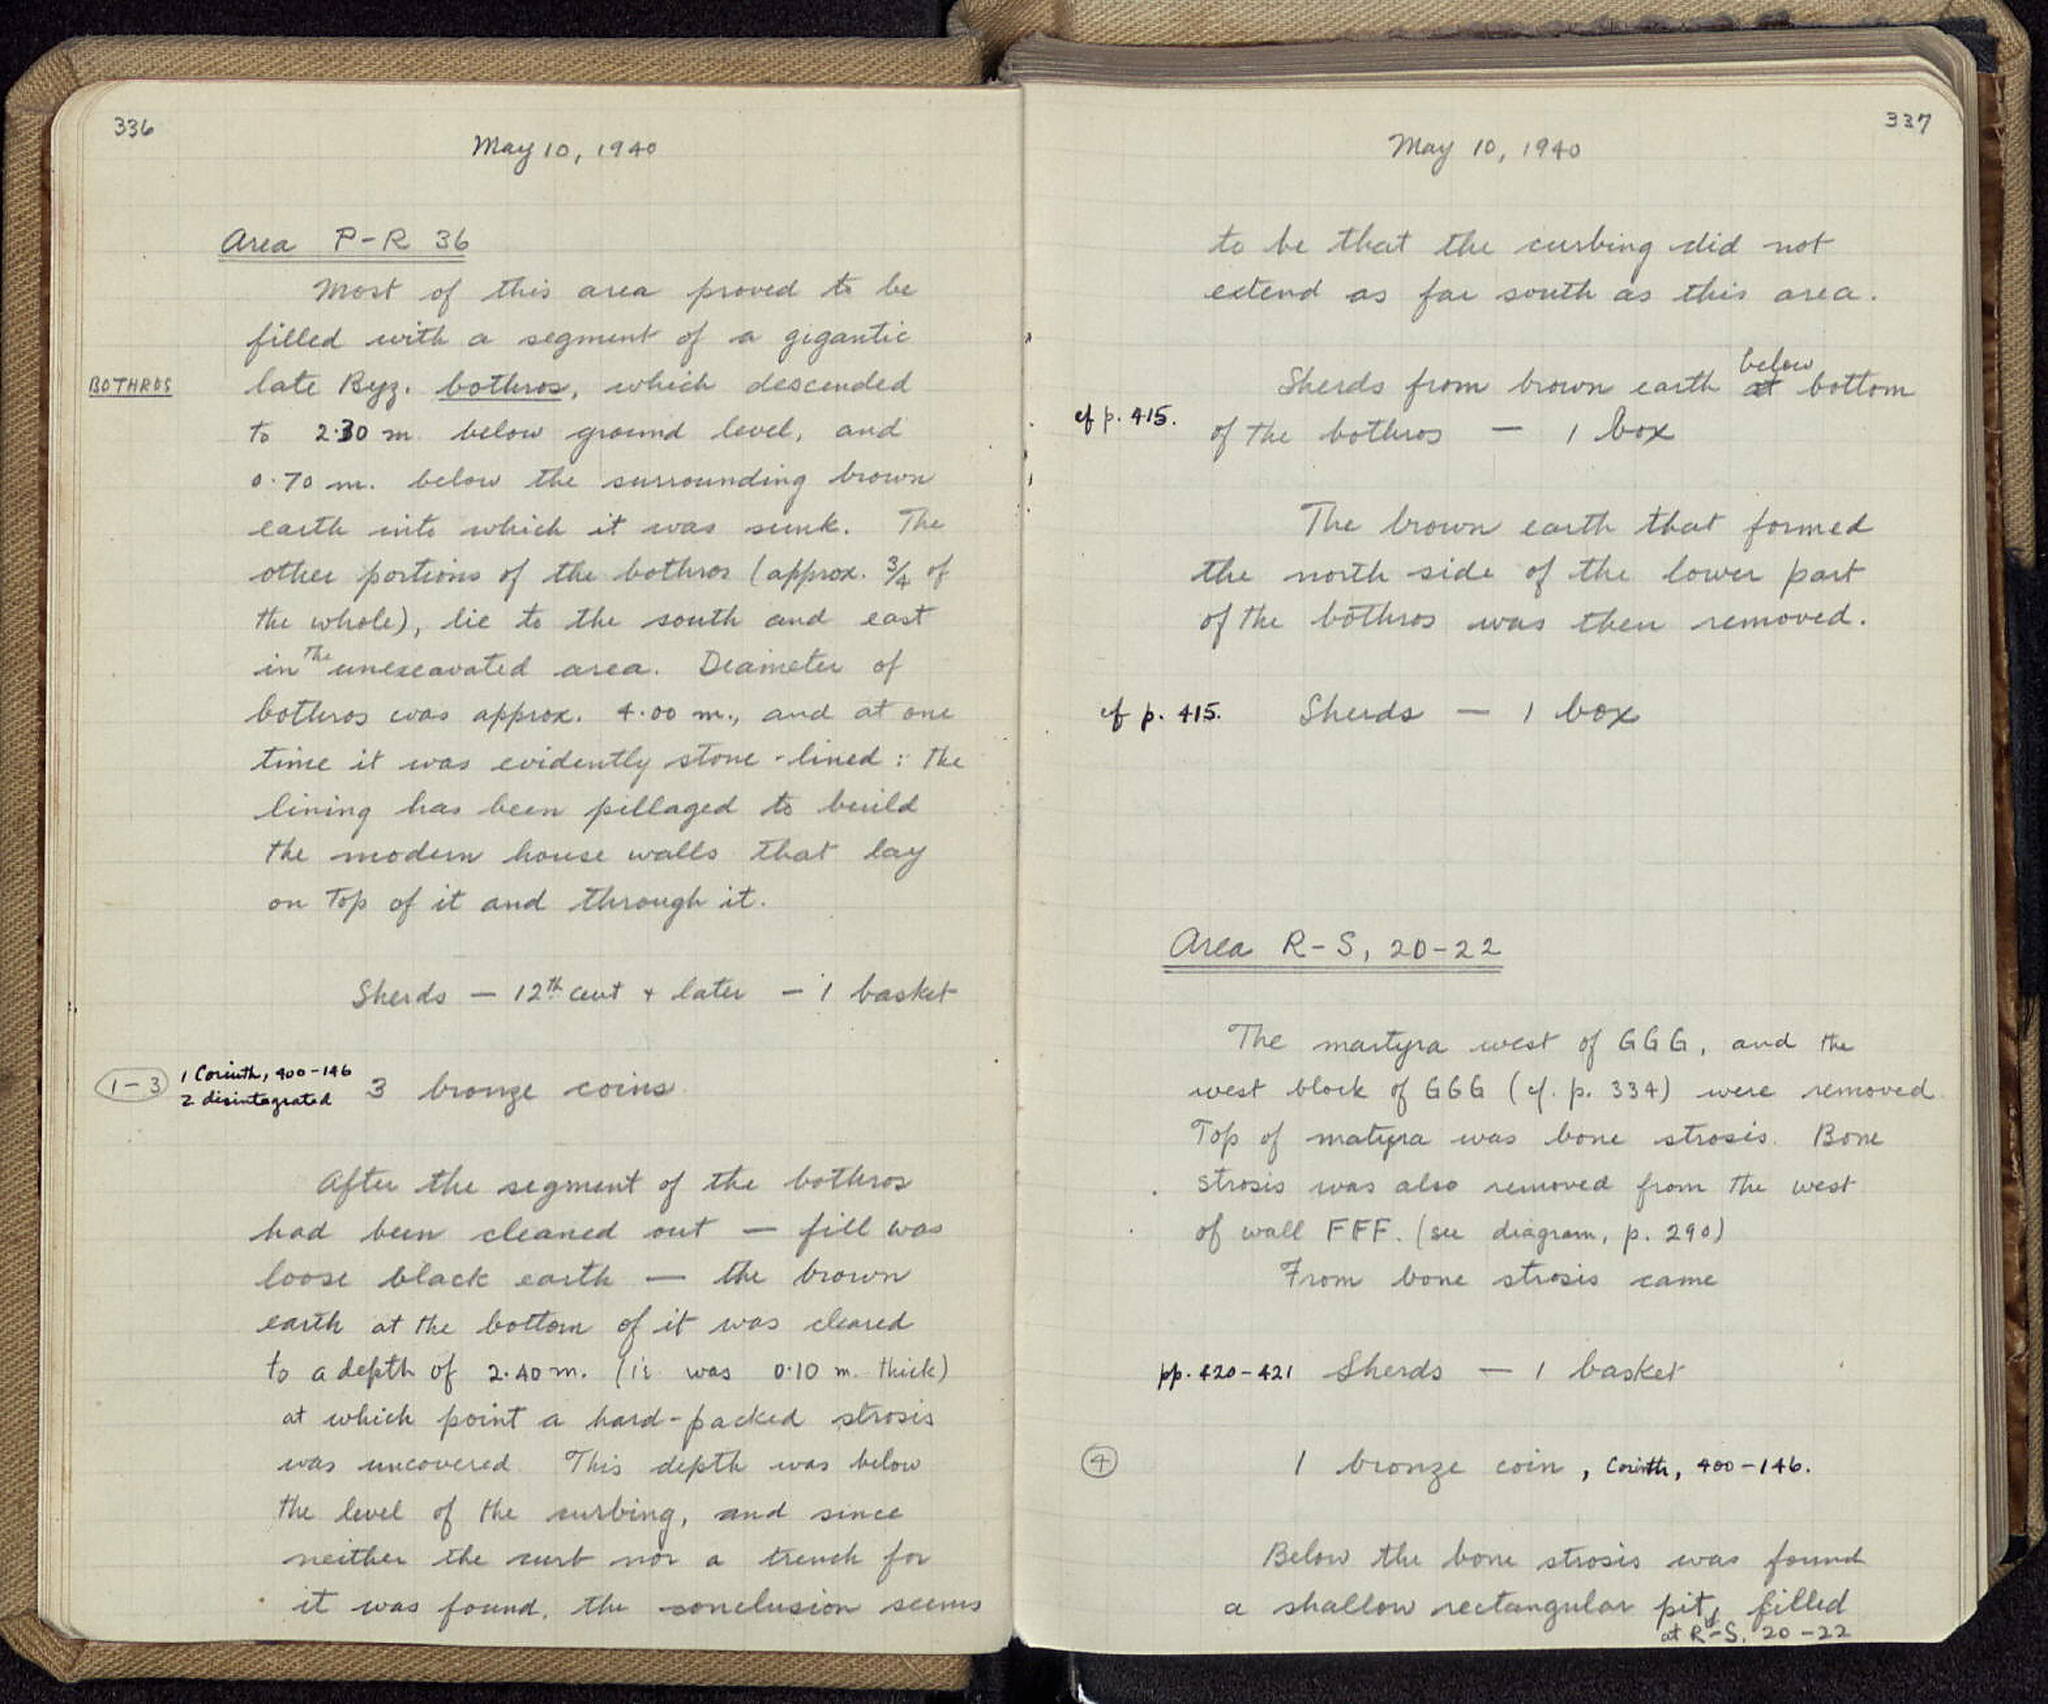 336
May 10, 1940
Area P-R 36
Most of this area proved to be
filled with a segment of a gigantic
BOTHROS
late Byz. bothros, which descended
to 2.30 m. below ground level, and
0.70 m. below the surrounding brown
earth into which it was sunk. The
other portions of the bothros (approx. 3/4 of
the whole), lie to the south and east
in the unexcavated area. Diameter of
bothros was approx. 4.00 m., and at one
time it was evidently stone-lined: the
lining has been pillaged to build
the modern house walls that lay
on top of it and through it.
Sherds — 12th cent + later — 1 basket
1-3
1 Corinth, 400-146
2 disintegrated
3 bronze coins
After the segment of the bothros
had been cleaned out — fill was
loose black earth — the brown
earth at the bottom of it was cleared
to a depth of 2.40 m. (i.e. was 0.10 m. thick)
at which point a hard-packed strosis
was uncovered. This depth was below
the level of the curbing, and since
neither the curb nor a trench for
it was found, the conclusion seems
337
May 10, 1940
to be that the curbing did not
extend as far south as this area.
Sherds from brown earth below at bottom
cf p. 415.
of the bothros — 1 box
The brown earth that formed
the north side of the lower part
of the bothros was then removed.
cf p. 415. Sherds — 1 box
Area R-S, 20-22
The martyra west of GGG, and the
west block of GGG (cf. p. 334) were removed.
Top of matyra was bone strosis. Bone
strosis was also removed from the west
of wall FFF. (see diagram, p. 290)
From bone strosis came
pp. 420-421 Sherds — 1 basket
4
1 bronze coin, Corinth, 400-146.
Below the bone strosis was found
a shallow rectangular pit, filled
at R-S, 20-22